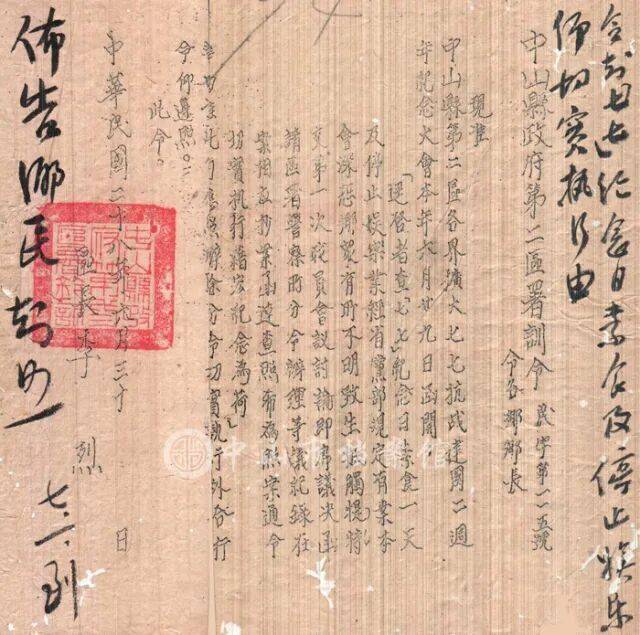 令知七七纪念日素食及停止娱乐
仰切实执行由
中山縣政府第二區署訓令 民字第一一五號
令各鄉鄉長
現准
中山縣第二區各界擴大七七抗武建国二週
年紀念大會本年六月廿九日函開
「逕啓者查『七七』紀念日素食一天
及停止娱樂業經有黨部規定有案本
會深恐鄉製有所不明致生抵觸提特
交第一次籌員會議討論即席議决函
請區署警察所分令辦理等議紀錄在
案相应抄案函達查照希為照案通令
切實执行藉資紀念為荷」
等由准此自應照辦除分令切實执行外合行
令仰遵照。
此令。
中華民國二十八年六月三十 日
區長 李 烈
佈告鄉民知照
七、一、到
中山市档案馆